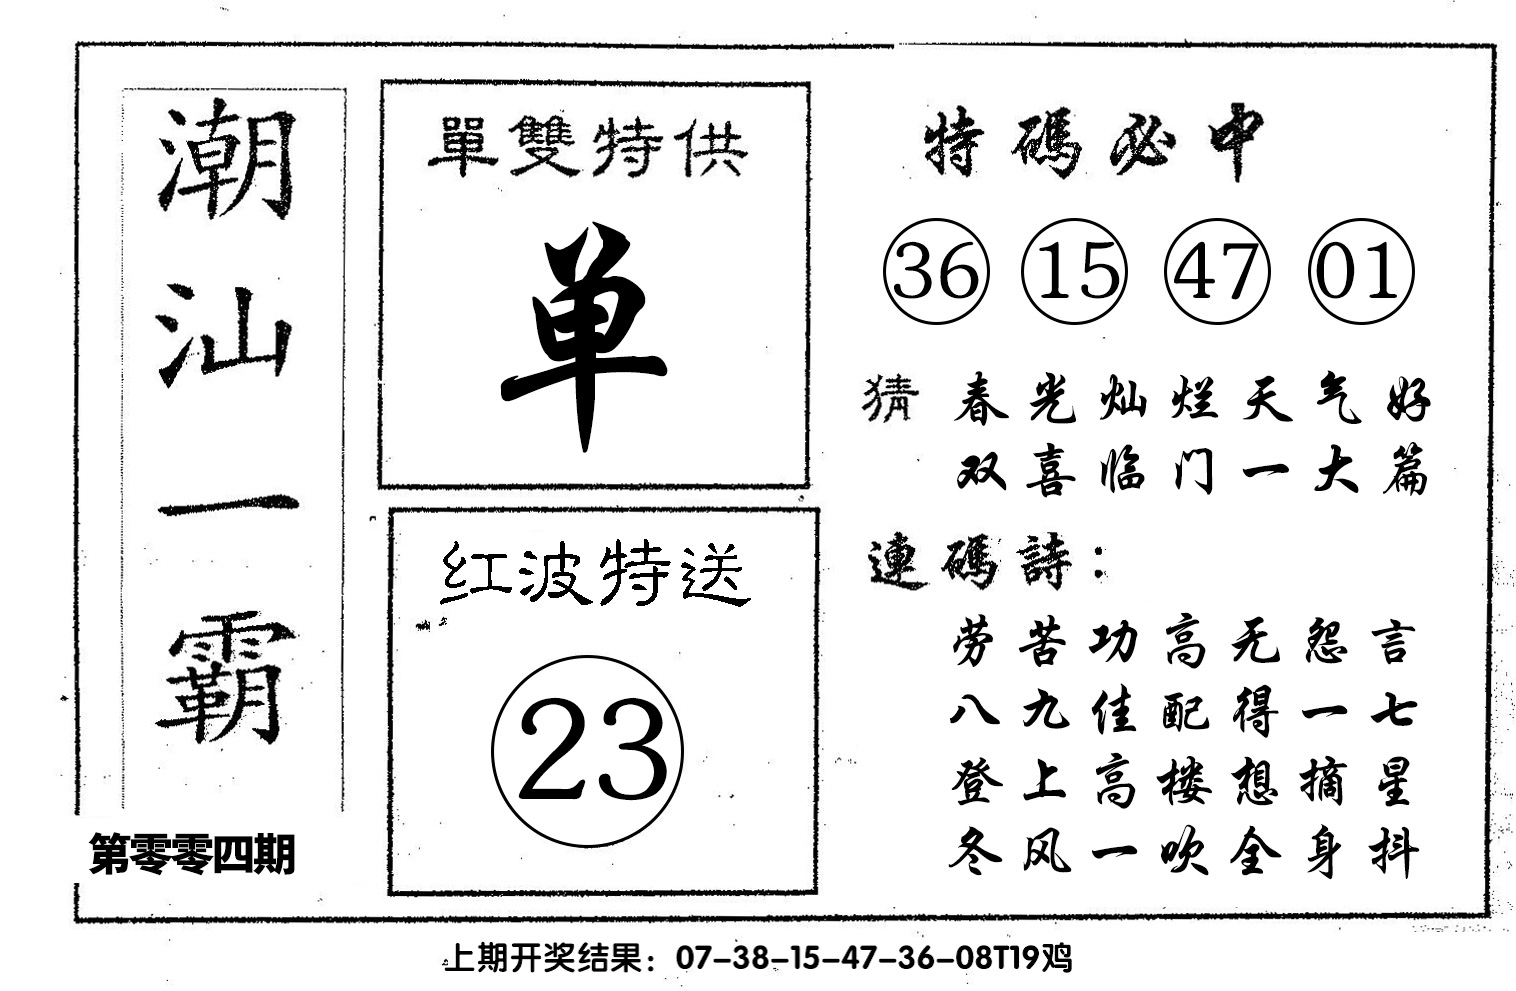 潮汕一霸
第零零四期
單雙特供
单
红波特送
23
特碼必中
36 15 47 01
猜 春光灿烂天气好
双喜临门一大篇
連碼詩：
劳苦功高无怨言
八九佳配得一七
登上高楼想摘星
冬风一吹全身抖
上期开奖结果：07-38-15-47-36-08T19鸡